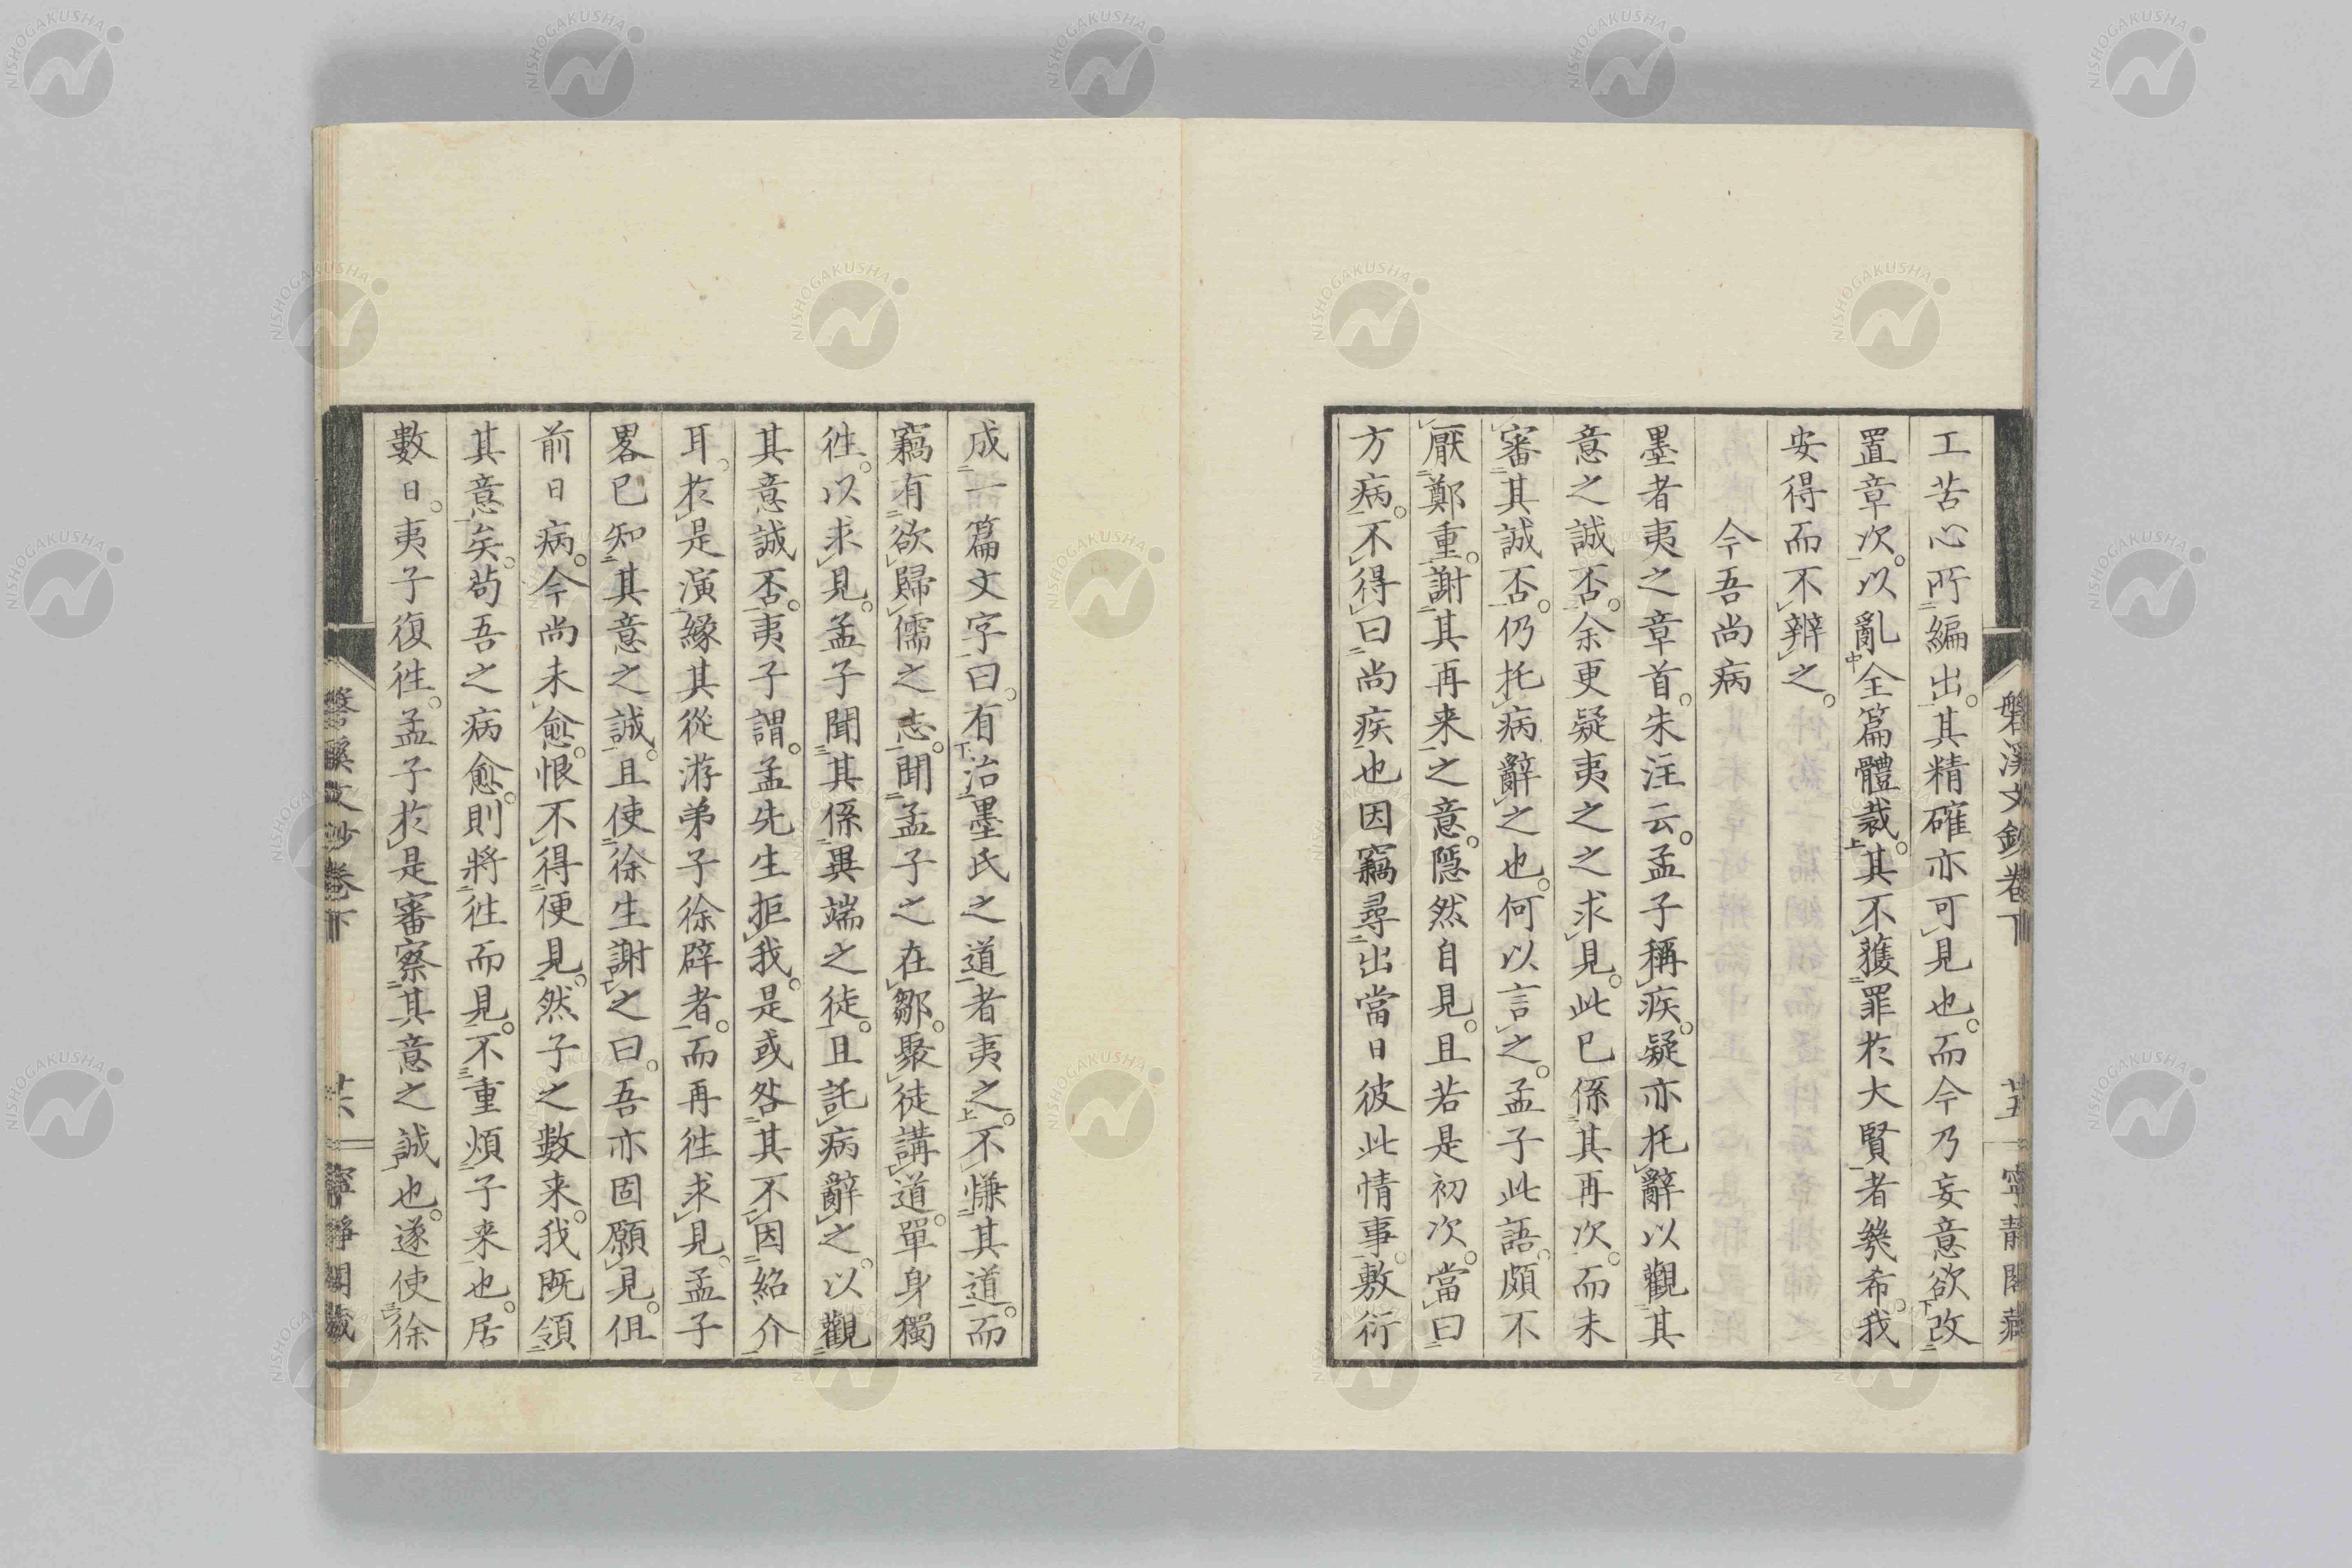 磐溪文鈔卷下 廿五 寧靜閣藏
工苦心所編出。其精確亦可見也。而今乃妄意欲改
置章次。以亂全篇體裁。其不獲罪於大賢者幾希。我
安得而不辨之。
今吾尚病
墨者夷之章首。朱注云。孟子稱疾。疑亦托辭以觀其
意之誠否。余更疑夷之之求見。此已係其再次。而未
審其誠否。仍托病辭之也。何以言之。孟子此語。頗不
厭鄭重。謝其再来之意。隱然自見。且若是初次。當曰
方病。不得曰尚疾也因竊尋出當日彼此情事。敷衍
成一篇文字曰。有治墨氏之道者夷之。不慊其道。而
竊有欲歸儒之志。聞孟子之在鄒。聚徒講道。單身獨
往。以求見。孟子聞其係異端之徒。且託病辭之。以觀
其意誠否。夷子謂。孟先生拒我。是或咎其不因紹介
耳。於是演緣其從游弟子徐辟者。而再往求見。孟子
畧已知其意之誠。且使徐生謝之曰。吾亦固願見。但
前日病。今尚未愈。恨不得便見。然子之數来。我既領
其意矣。苟吾之病愈。則將往而見。不重煩子来也。居
數日。夷子復往。孟子於是審察其意之誠也。遂使徐
磐溪文鈔卷下 廿六 寧靜閣藏